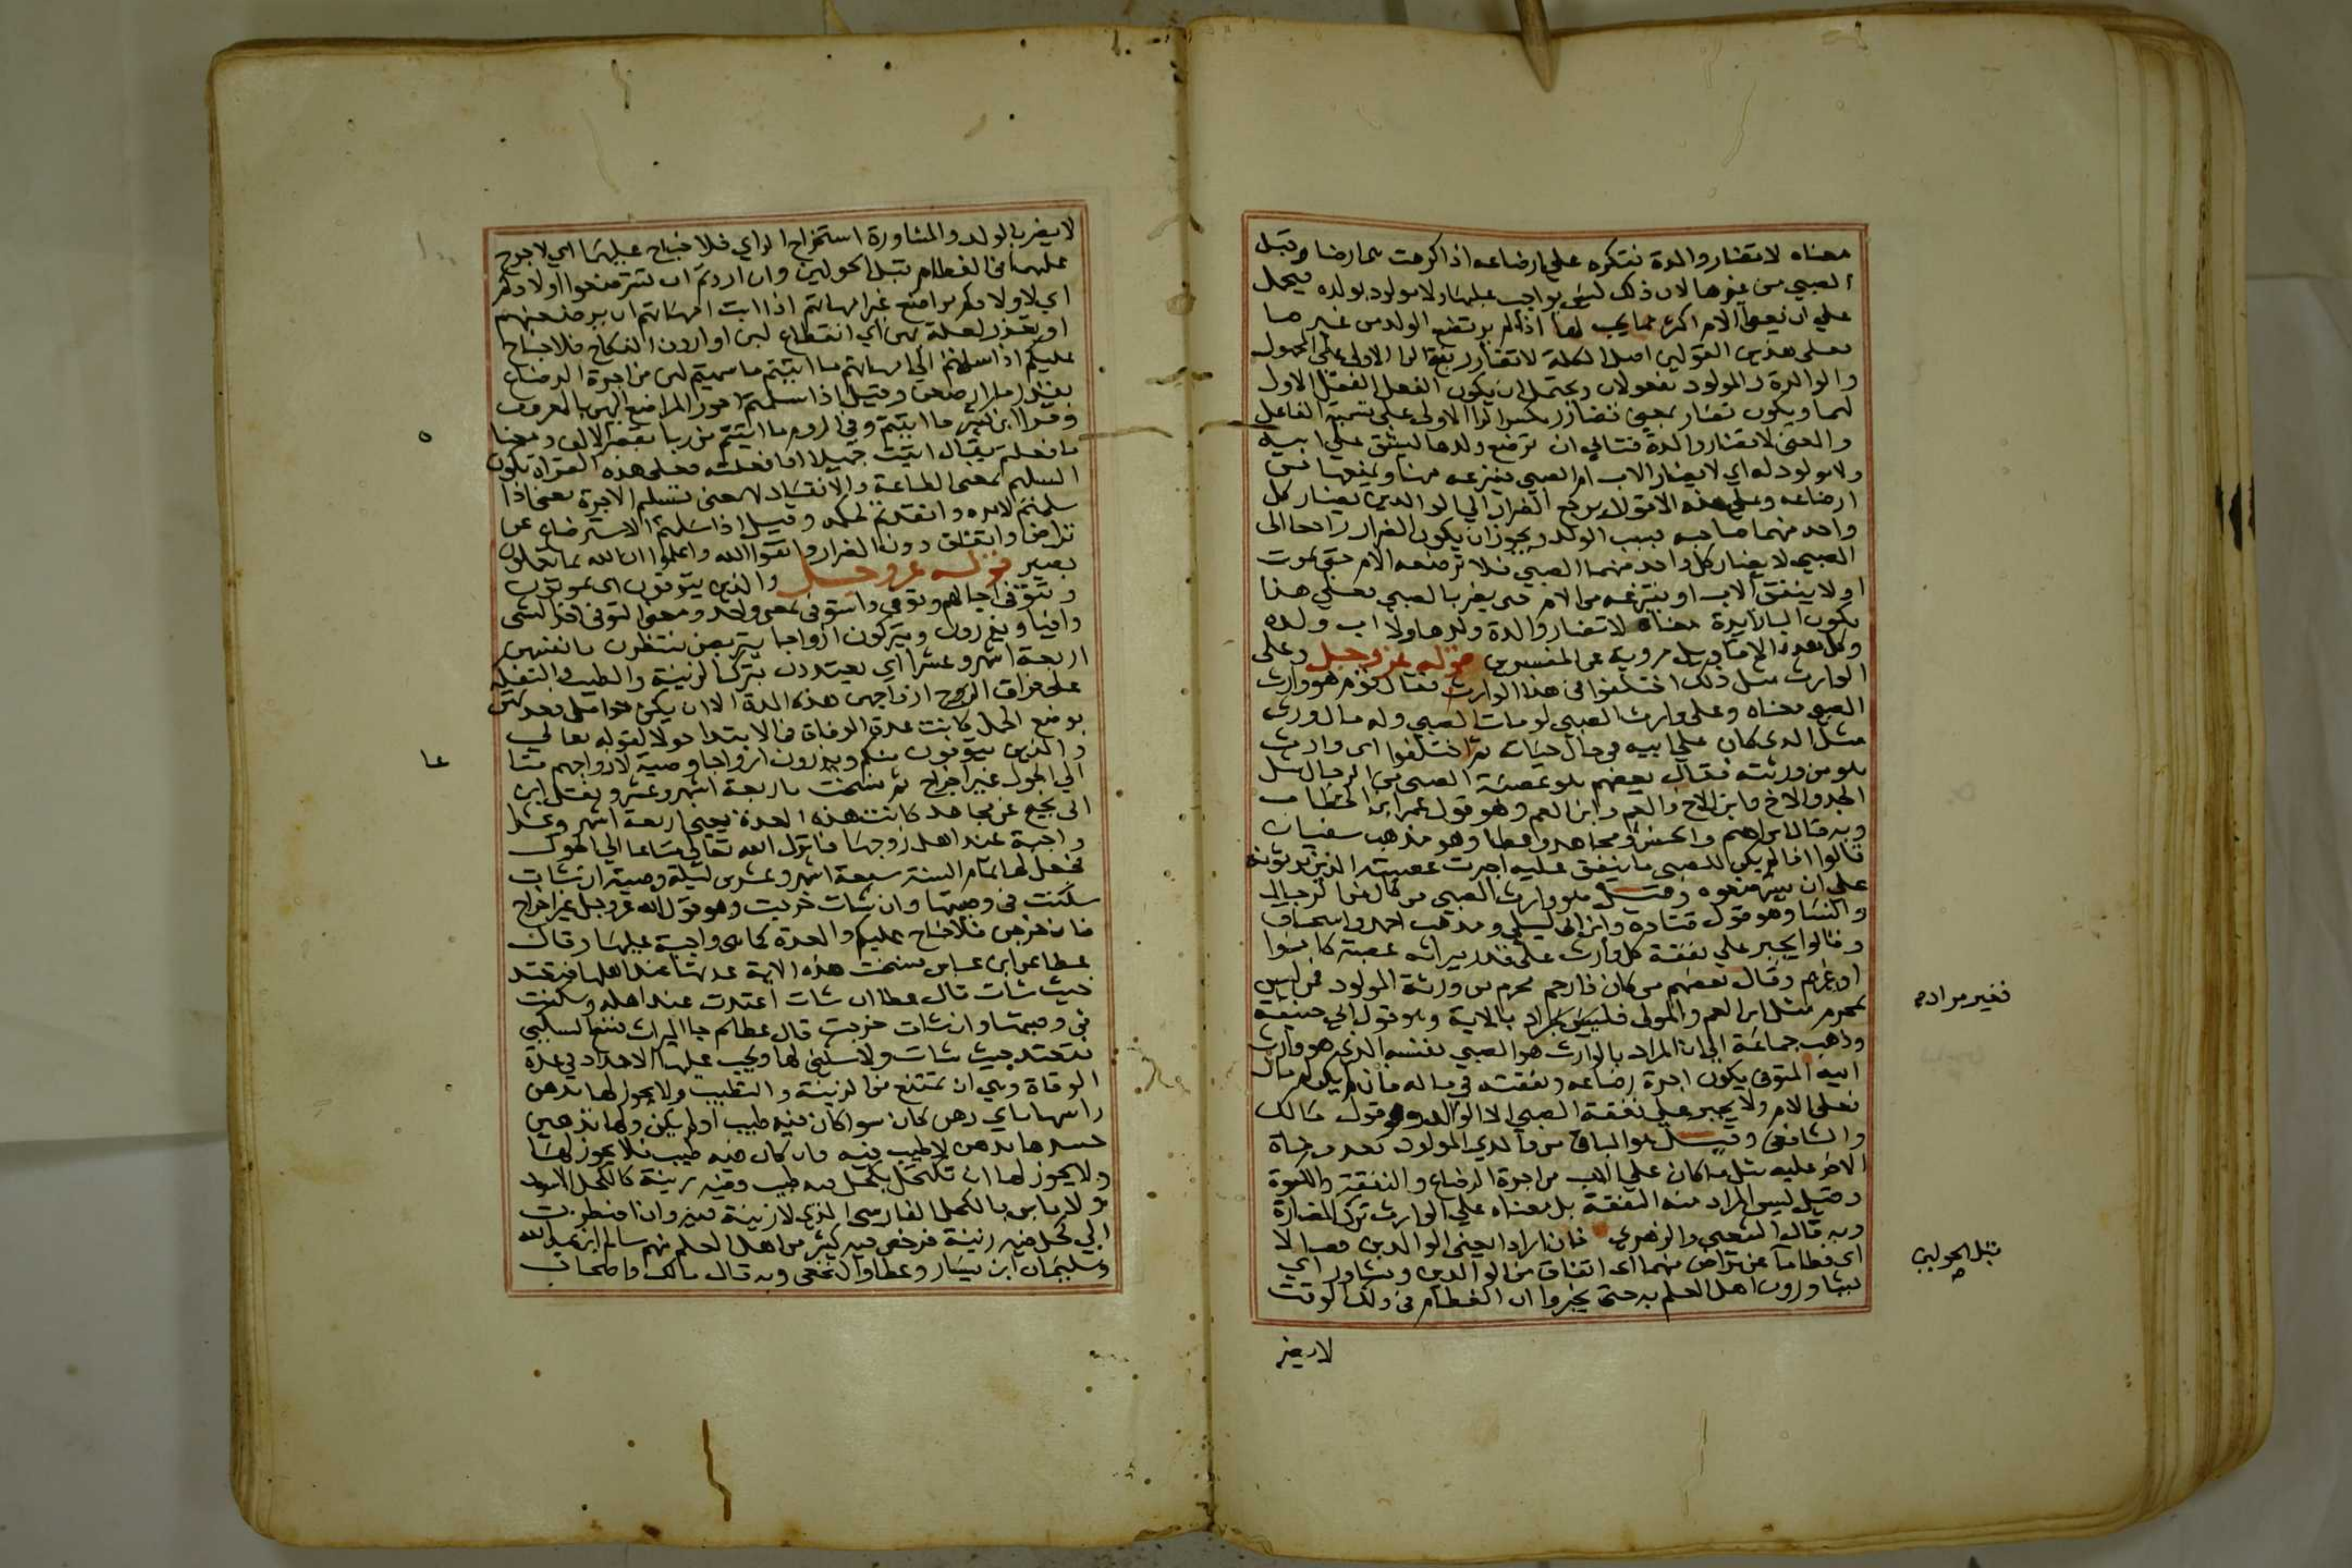 معناه لا تضار والدة فتكره على ارضاعه اذا كرهت ارضا وقبل
الصبي من غيرها لان ذلك ليس بواجب عليها ولا مولود بولده فيحمل
على ان يعطي الام اكثر مما يجب لها اذا لم يرتضع الولد من غيرها
فعلى هذين القولين اصل الكلمة لا تضارر بفتح الرا الاولى على المجهول
والوالدة والمولود مفعولان ويحتمل ان يكون الفعل الاول
لهما ويكون تضار بمعنى تضارر بكسر الرا الاولى على تسمية الفاعل
والمعنى لا تضار والدة فتابي ان ترضع ولدها ليشق على ابيه
ولا مولود له اي لا يضار الاب ام الصبي فينزعه منها ويمنعها من
ارضاعه وعلى هذه الاقوال يرجع الضرار الى الوالدين يضار كل
واحد منهما صاحبه بسبب الولد ويجوز ان يكون الضرار راجعا الى
الصبي لا يضار كل واحد منهما الصبي فلا ترضعه الام حتى يموت
او لا ينفق الاب او ينتزعه من الام حتى يضر بالصبي فعلى هذا
يكون البا زايدة معناه لا تضار والدة ولدها ولا اب ولده
وكل هذه الاقاويل مروية عن المفسرين قوله عز وجل وعلى
الوارث مثل ذلك اختلفوا في هذا الوارث فقال قوم هو وارث
الصبي معناه وعلى وارث الصبي لو مات الصبي وله مال ورثه
مثل الذي كان على ابيه في حال حياته ثم اختلفوا اي وارث
هو من ورثته فقال بعضهم هو عصبة الصبي من الرجال مثل
الجد والاخ وابن الاخ والعم وابن العم وهو قول عمر ابن الخطاب
وبه قال ابراهيم والحسن ومجاهد وعطا وهو مذهب سفيان
قالوا اذا لم يكن للصبي ما ينفق عليه اجبرت عصبته الذين يرثونه
على ان يسترضعوه وقيل هو وارث الصبي من كان من الرجال
والنسا وهو قول قتادة وابن ابي ليلى ومذهب احمد واسحاق
وقالوا يجبر على نفقة كل وارث على قدر ميراثه عصبة كانوا
او غيرهم وقال بعضهم من كان ذا رحم محرم من ورثة المولود فمن ليس
بمحرم مثل ابن العم والمولى فليس بمراد بالاية وهو قول ابي حنيفة
وذهب جماعة الى ان المراد بالوارث هو الصبي نفسه الذي هو وارث
ابيه المتوفى يكون اجرة رضاعه ونفقته في ماله فان لم يكن له مال
فعلى الام ولا يجبر على نفقة الصبي الا الوالدين وهو قول مالك
والشافعي وقيل هو الباقي من والدي المولود بعد وفاة
الاخر عليه مثل ما كان على الاب من اجرة الرضاع والنفقة والكسوة
وقيل ليس المراد منه النفقة بل معناه على الوارث ترك المضارة
وبه قال الشعبي والزهري فان ارادا يعني الوالدين فصالا
اي فطاما عن تراض منهما اي اتفاق من الوالدين وتشاور اي
يشاورون اهل العلم به حتى يخبروا ان الفطام في ذلك الوقت
لا يضر
فغير مراد
قبل الحولين
لا يضر بالولد والمشاورة استخراج الراي فلا جناح عليهما اي لا حرج
عليهما في الفطام قبل الحولين وان اردتم ان تسترضعوا اولادكم
اي لاولادكم مراضع غير امهاتهم اذا ابت امهاتهم ان يرضعنهم
او تعذر لعلة بهن اي انقطاع لبن او اردن النكاح فلا جناح
عليكم اذا سلمتم الى امهاتهم ما اتيتم ما سميتم لهن من اجرة الرضاع
بقدر ما ارضعن وقيل اذا سلمتم اجور المراضع اليهن بالمعروف
وقرا ابن كثير ما اتيتم وفي الروم ما اتيتم من ربا بقصر الالف ومعناه
ما فعلتم يقال اتيت جميلا اذا فعلته فعلى هذه القراة يكون
التسليم بمعنى الطاعة والانقياد لا بمعنى تسليم الاجرة يعني اذا
سلمتم لامره وانقدتم لحكمه وقيل اذا سلمتم الاسترضاع عن
تراض واتفاق دون الضرار واتقوا الله واعلموا ان الله بما تعملون
بصير قوله عز وجل والذين يتوفون اي يموتون
وتتوفى اجالهم وتوفي واستوفى بمعنى واحد ومعنى التوفي اخذ الشي
وافيا ويذرون ويتركون ازواجا يتربصن ينتظرن بانفسهن
اربعة اشهر وعشرا اي يعتددن بترك الزينة والطيب والنقلة
على فراق ازواجهن هذه المدة الا ان يكن حوامل فعدتهن
بوضع الحمل كانت عدة الوفاة في الابتدا حولا لقوله تعالى
والذين يتوفون منكم ويذرون ازواجا وصية لازواجهم متاعا
الى الحول غير اخراج ثم نسخت باربعة اشهر وعشر وعن ابن
ابي نجيح عن مجاهد كانت هذه العدة يعني اربعة اشهر وعشرا
واجبة عند اهل زوجها فانزل الله تعالى متاعا الى الحول
فجعل لها تمام السنة سبعة اشهر وعشرين ليلة وصية ان شات
سكنت في وصيتها وان شات خرجت وهو قول الله عز وجل غير اخراج
فان خرجن فلا جناح عليكم والعدة كما هي واجبة عليها وقال
عطا عن ابن عباس نسخت هذه الاية عدتها عند اهلها فتعتد
حيث شات قال عطا ان شات اعتدت عند اهله وسكنت
في وصيتها وان شات خرجت قال عطا ثم جا الميراث فنسخ السكنى
فتعتد حيث شات ولا سكنى لها ويجب عليها الاحداد في عدة
الوفاة وهي ان تمتنع من الزينة والتطيب ولا يجوز لها تدهين
راسها باي دهن كان سوا كان فيه طيب او لم يكن ولها تدهين
جسدها بدهن لا طيب فيه فان كان فيه طيب فلا يجوز لها
ولا يجوز لها ان تكتحل بكحل فيه طيب وفيه زينة كالكحل الاسود
ولا باس بالكحل الفارسي الذي لا زينة فيه وان اضطرت
الى كحل فيه زينة فرخص فيه كثير من اهل العلم منهم سالم ابن عبد الله
وسليمان ابن يسار وعطا والنخعي وبه قال مالك واصحاب